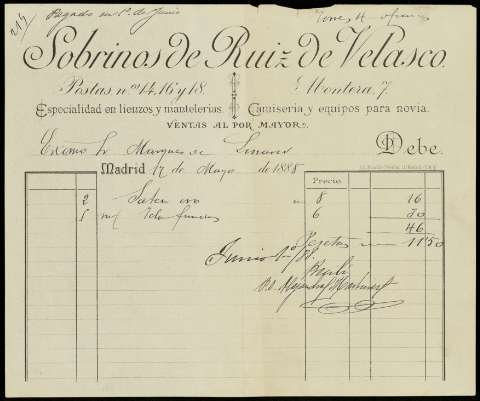 214
Pagado en 1º de Junio
Sobrinos de Ruiz de Velasco.
Postas nos 14, 16 y 18.
Montera, 7.
Especialidad en lienzos y mantelerías
Camisería y equipos para novia.
VENTAS AL POR MAYOR.
Excmo Sr Marques de Linares
Debe.
Madrid 17 de Mayo de 1888
Precio
2 8 16
5 m/ Tela 6 30
46
Pesetas 11'50
Junio 1º/88.
Recibí